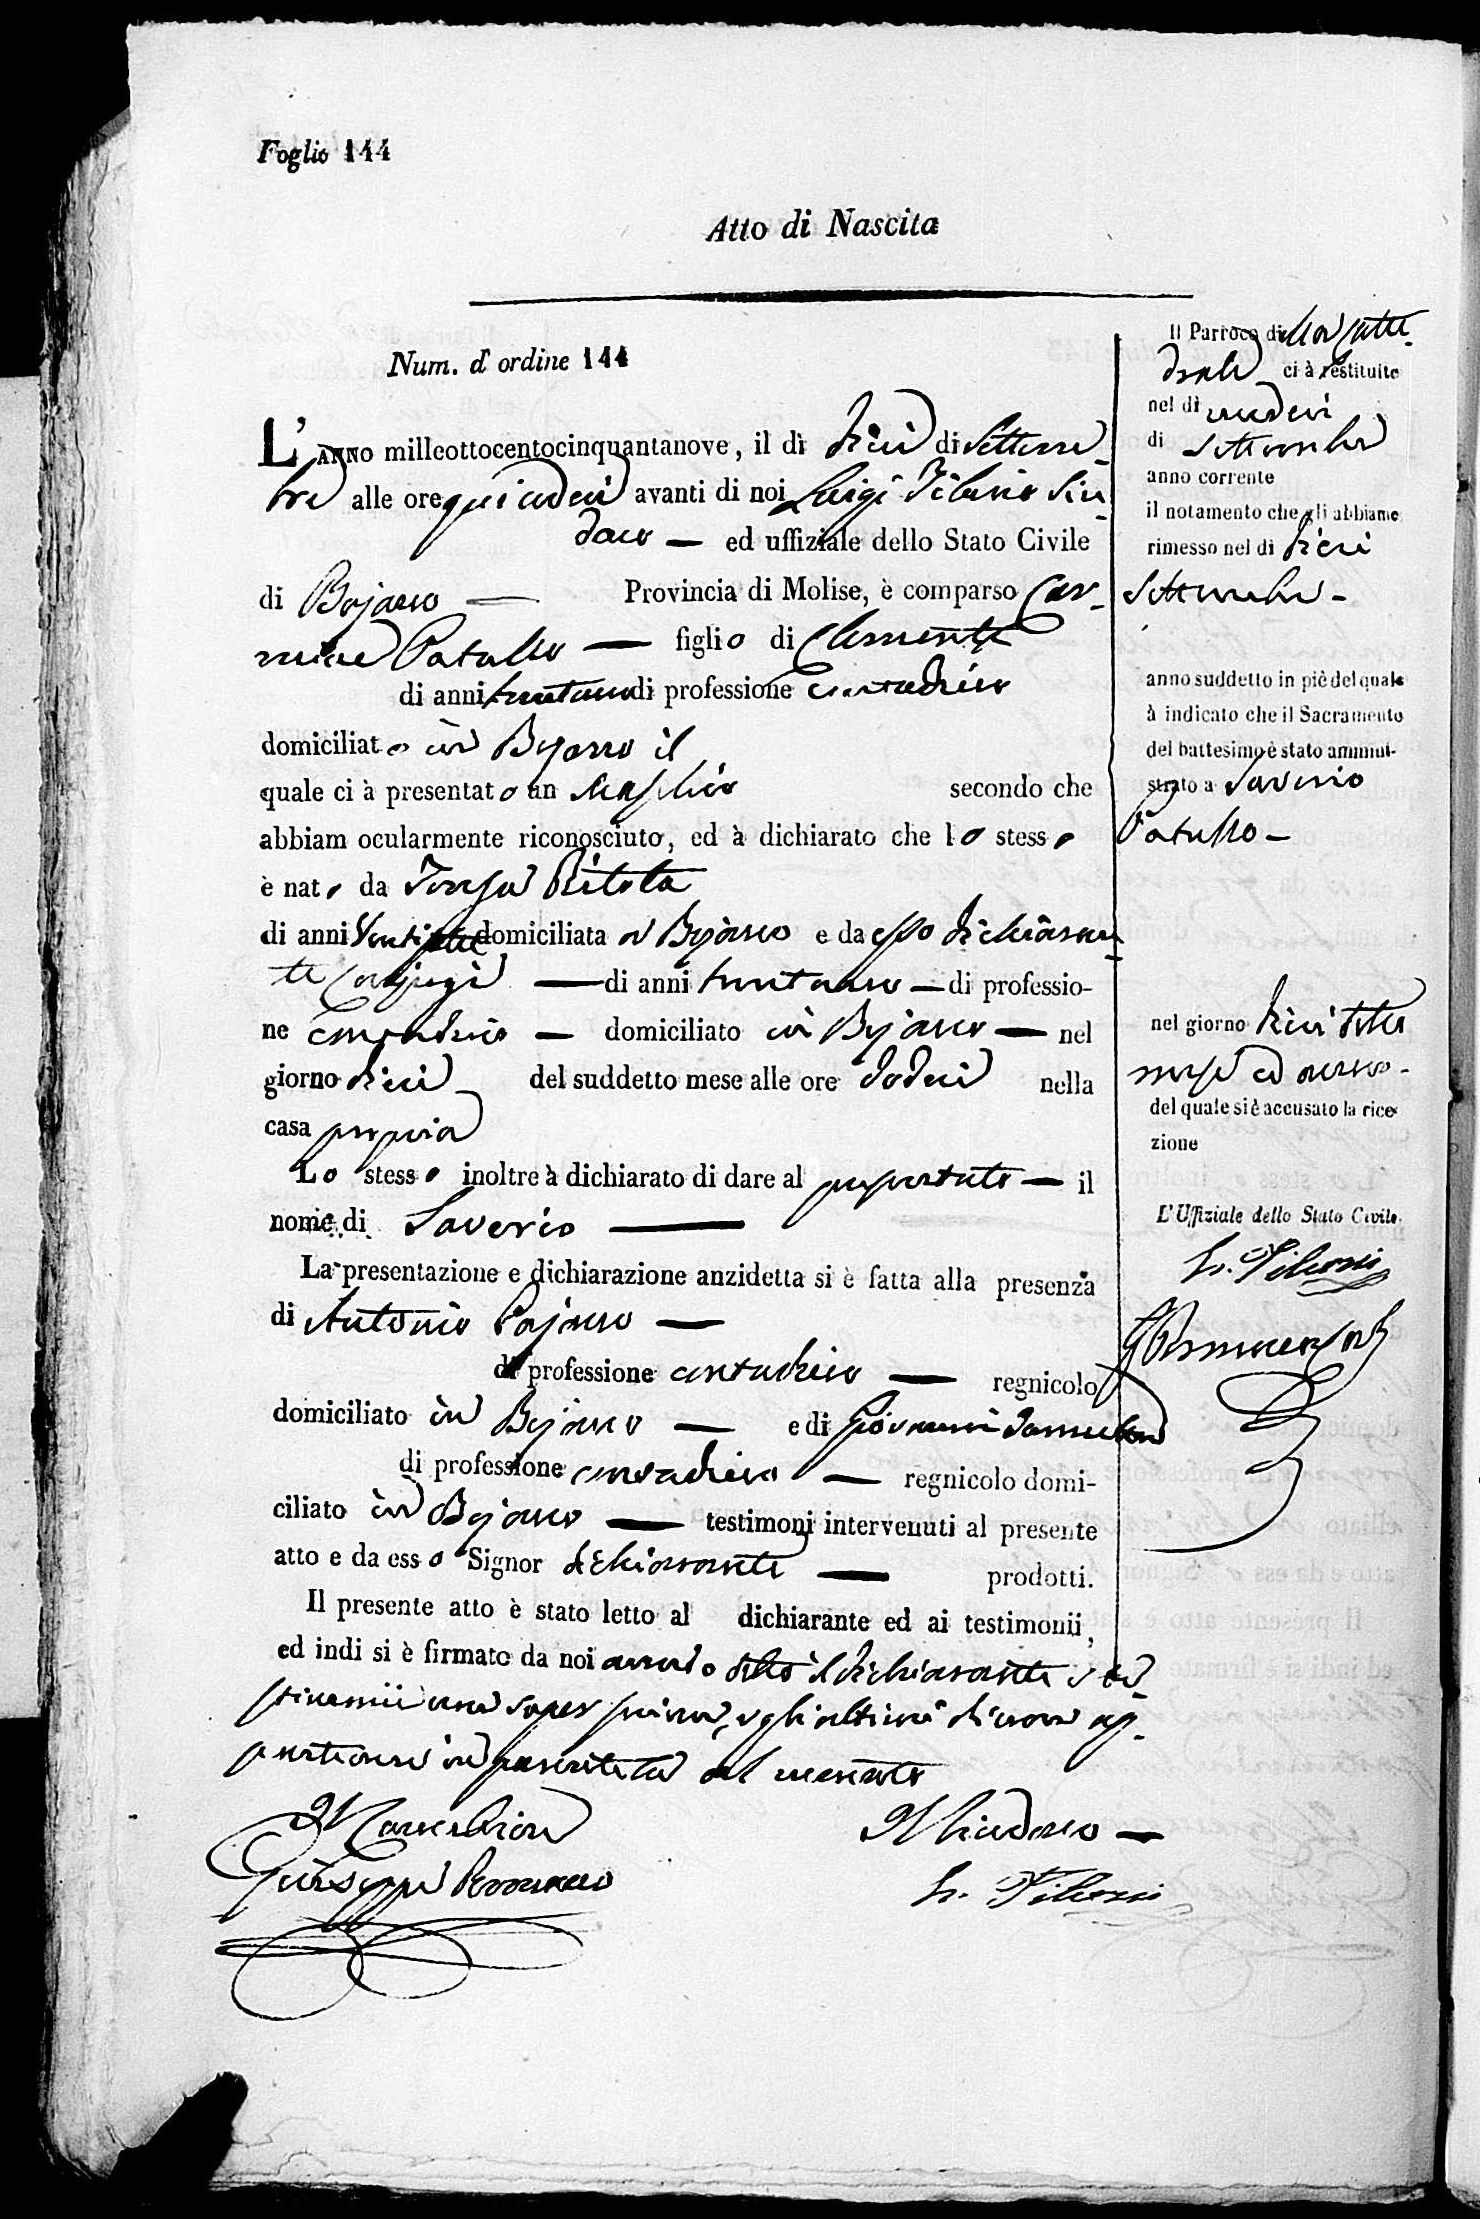 Foglio 144
Atto di Nascita
Num. d'ordine 144
L'ANNO milleottocentocinquantanove, il dì dieci di Settem-
bre alle ore quindeci avanti di noi Luigi Tiberio Sin-
daco — ed uffiziale dello Stato Civile
di Bojano — Provincia di Molise, è comparso Car-
mine Patullo — figlio di Clemente
di anni trentuno di professione contadino
domiciliato in Bojano il
quale ci à presentato un Maschio secondo che
abbiam ocularmente riconosciuto, ed à dichiarato che lo stesso
è nato da Teresa Ritota
di anni Ventisette domiciliata in Bojano e da esso dichiaran-
te conjugi — di anni trentuno — di professio-
ne contadino — domiciliato in Bojano — nel
giorno dieci del suddetto mese alle ore dodeci nella
casa propria
Lo stesso inoltre à dichiarato di dare al presentato — il
nome di Saverio —
La presentazione e dichiarazione anzidetta si è fatta alla presenza
di Antonio Pajano —
di professione contadino — regnicolo
domiciliato in Bojano — e di Giovanni
di professione contadino — regnicolo domi-
ciliato in Bojano — testimoni intervenuti al presente
atto e da esso Signor dichiarante — prodotti.
Il presente atto è stato letto al dichiarante ed ai testimonii,
ed indi si è firmato da noi avendo detto il dichiarante e te-
stimonii non saper scrivere, e gli ultimi di non ap-
partenere in parentela al neonato
Il Cancelliere
Giuseppe
Il Sindaco —
L. Tiberio
Il Parroco della Catte-
drale ci à restituito
nel dì undeci
di Settembre
anno corrente
il notamento che gli abbiamo
rimesso nel dì dieci
Settembre -
anno suddetto in piè del quale
à indicato che il Sacramento
del battesimo è stato ammini-
strato a Saverio
Patullo -
nel giorno dieci detto
mese ed anno -
del quale si è accusato la rice
zione
L'Uffiziale dello Stato Civile
L. Tiberio